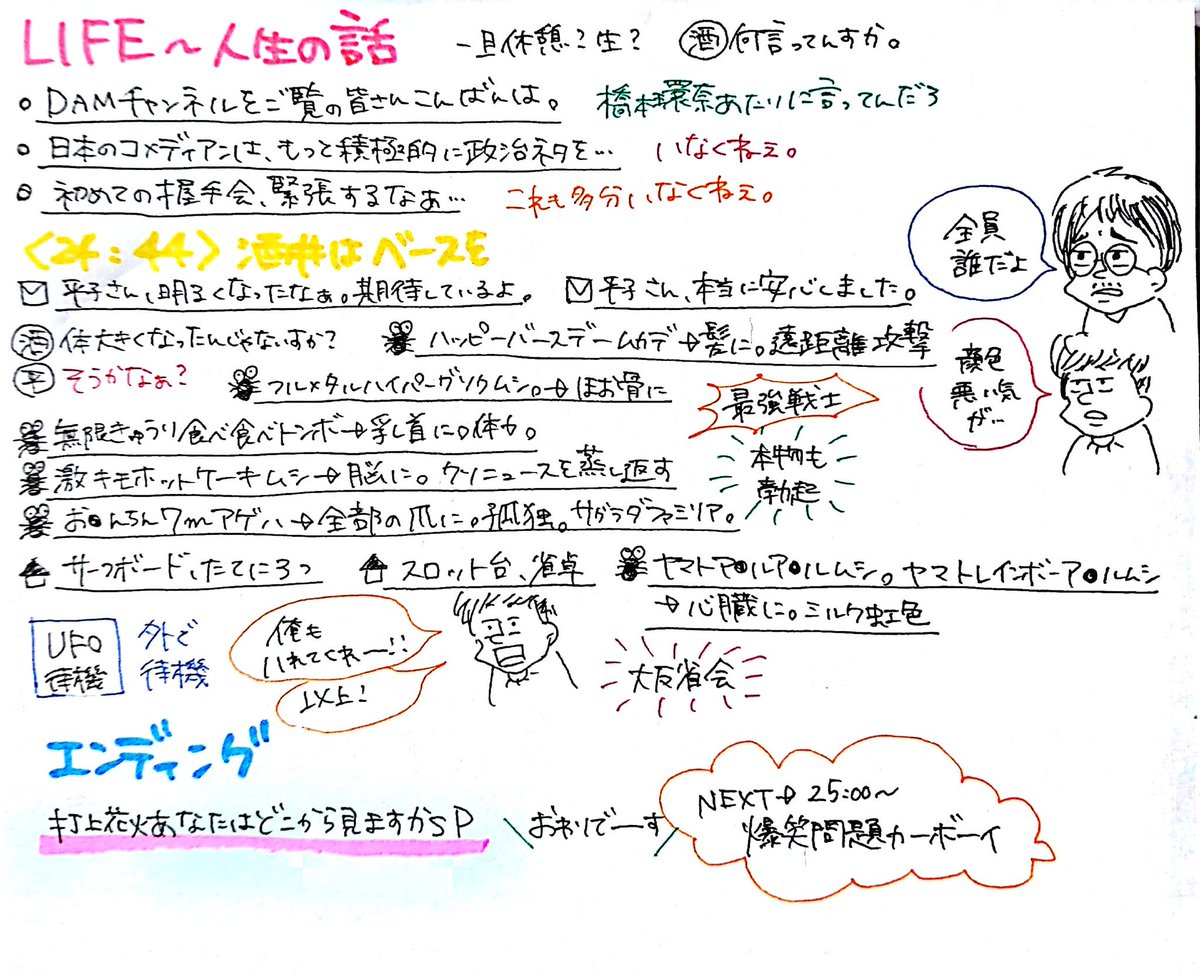 LIFE～人生の話
一旦休憩？生？ 酒 何言ってんすか。
DAMチャンネルをご覧の皆さんこんばんは。 橋本環奈あたりに言ってんだろ
日本のコメディアンは、もっと積極的に政治ネタを… いなくねぇ。
初めての握手会、緊張するなぁ… これも多分いなくねぇ。
全員
誰だよ
〈24:44〉酒井はベースを
平子さん、明るくなったなぁ。期待しているよ。 平子さん、本当に安心しました。
酒 体大きくなったんじゃないすか？ ハッピーバースデームカデ→髪に。遠距離攻撃
平 そうかなぁ？ フルメタルハイパーグソクムシ。→ほお骨に
顔色
悪い気
が…
最強戦士
無限きゅうり食べ食べトンボ→乳首に。体力。
本物も
勃起
激キモホットケーキムシ→脳に。クソニュースを蒸し返す
お●んちん7mアゲハ→全部の爪に。孤独。サグラダファミリア。
サーフボード、たてに3つ スロット台、雀卓 ヤマトア●ルア●ルムシ。ヤマトレインボーア●ルムシ
→心臓に。ミルク虹色
UFO
待機
外で
待機
俺も
入れてくれー!!
以上！
大反省会
エンディング
打上花火あなたはどこから見ますかSP
おわりでーす
NEXT→25:00～
爆笑問題カーボーイ